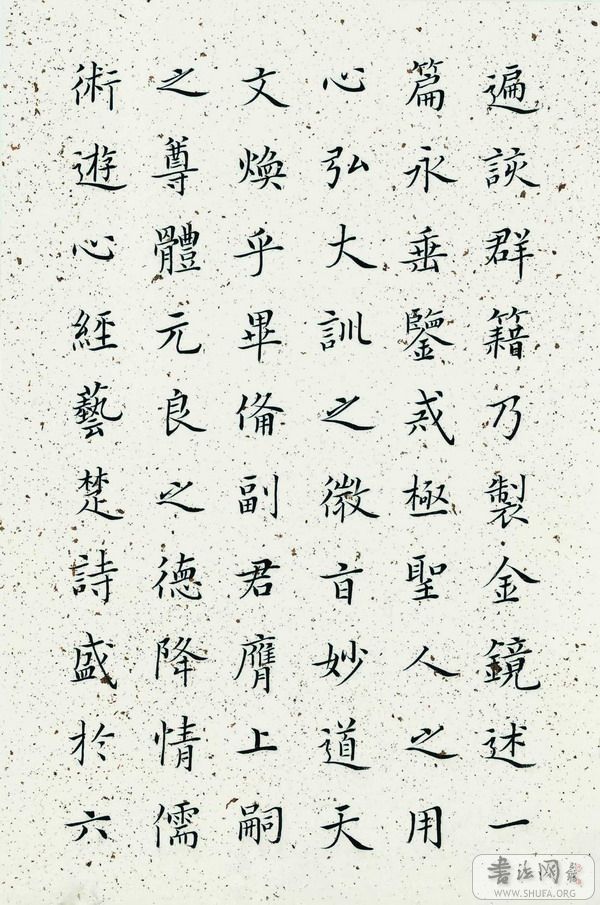 遍該群籍乃製金鏡述一
篇永垂鑒戒極聖人之用
心弘大訓之微旨妙道天
文煥乎畢備副君膺上嗣
之尊體元良之德降情儒
術遊心經藝楚詩盛於六
書法网
WWW.SHUFA.ORG